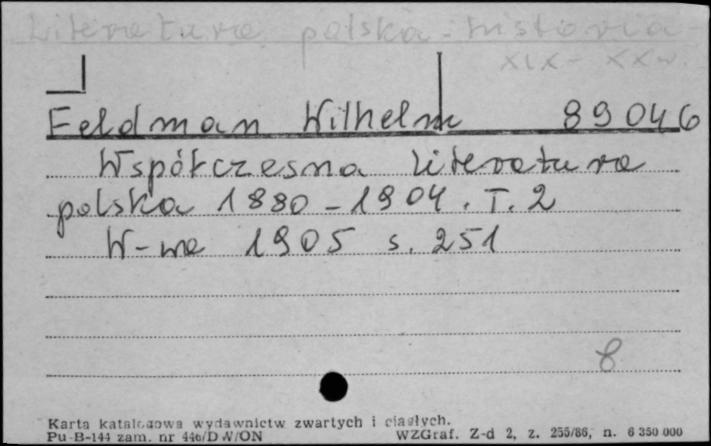 Literatura polska - historia -
XIX - XX w.
Feldman Wilhelm 89046
Współczesna literatura
polska 1880-1904. T. 2
W-wa 1905 s. 251
8
Karta katalogowa wydawnictw zwartych i ciągłych.
Pu-B-144 zam. nr 446/DW/ON WZGraf. Z-d 2, z. 255/86, n. 6 350 000